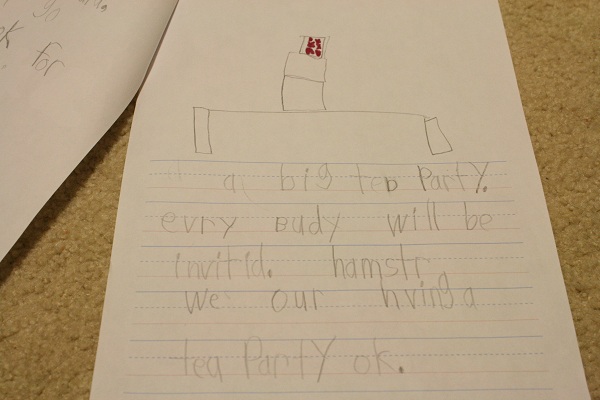 go
k for
a big tea Party.
evry Budy will be
invitid. hamstr
We our hving a
tea Party ok.